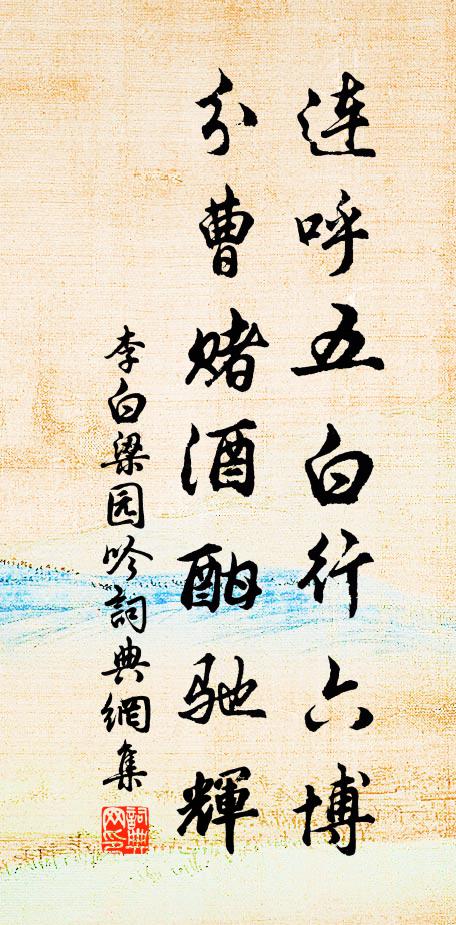 连呼五白行六博
分曹赌酒酣驰輝
李白梁园吟詞典網集
詞典網印